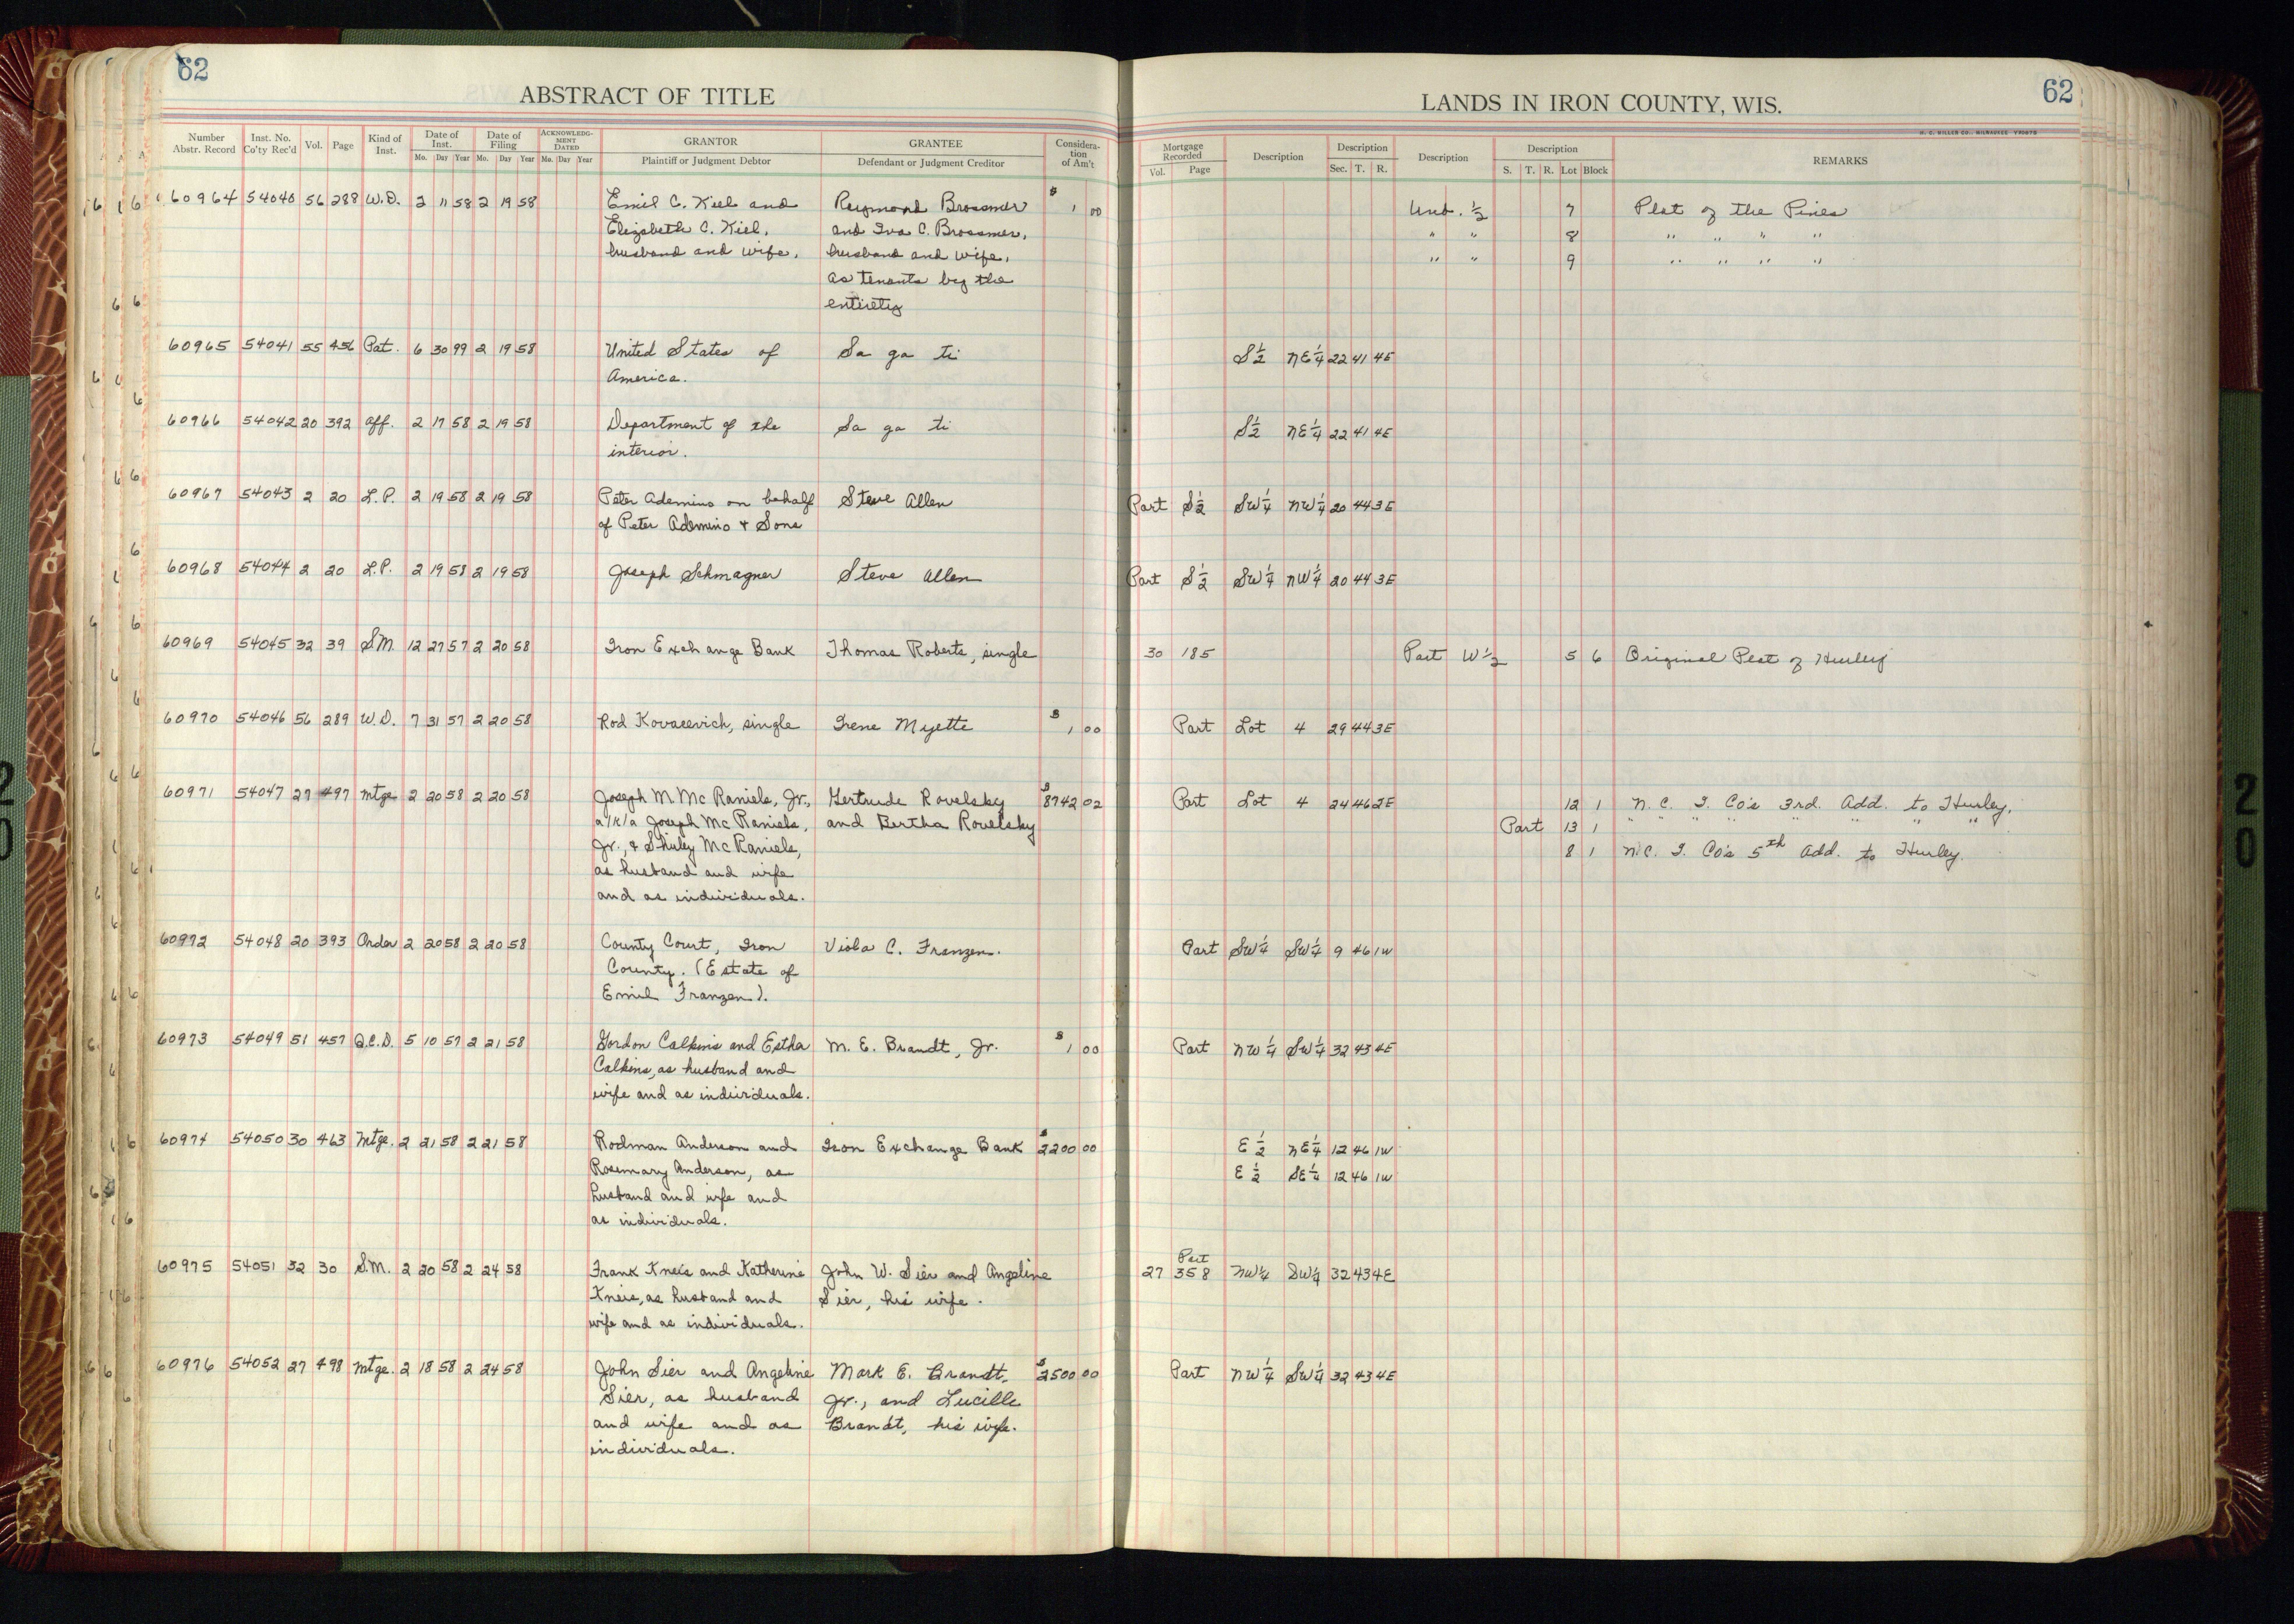 62
ABSTRACT OF TITLE
Number Abstr. Record | Inst. No. Co'ty Rec'd | Vol. | Page | Kind of Inst. | Date of Inst. Mo. Day Year | Date of Filing Mo. Day Year | ACKNOWLEDGMENT DATED Mo. Day Year | GRANTOR Plaintiff or Judgment Debtor | GRANTEE Defendant or Judgment Creditor | Consideration of Am't
60964 54040 56 288 W.D. 2 11 58 2 19 58 Emil C. Kiel and Raymond Brossmer $ 1 00
Elizabeth C. Kiel, and Iva C. Brossmer,
husband and wife. husband and wife,
as tenants by the
entirety
60965 54041 55 456 Pat. 6 30 99 2 19 58 United States of Sa ga ti
America.
60966 54042 20 392 Aff. 2 17 58 2 19 58 Department of the Sa ga ti
interior.
60967 54043 2 20 L.P. 2 19 58 2 19 58 Peter Ademino on behalf Steve Allen
of Peter Ademino & Sons
60968 54044 2 20 L.P. 2 19 58 2 19 58 Joseph Schmagner Steve Allen
60969 54045 32 39 S.M. 12 27 57 2 20 58 Iron Exchange Bank Thomas Roberts, single
60970 54046 56 289 W.D. 7 31 57 2 20 58 Rod Kovacevich, single Irene Myette $ 1 00
60971 54047 27 497 Mtge 2 20 58 2 20 58 Joseph M McRaniels, Jr., Gertrude Rovelsky $8742 02
a/k/a Joseph McRaniels, and Bertha Rovelsky
Jr., & Shirley McRaniels,
as husband and wife
and as individuals.
60972 54048 20 393 Order 2 20 58 2 20 58 County Court, Iron Viola C. Franzen.
County. (Estate of
Emil Franzen).
60973 54049 51 457 Q.C.D. 5 10 57 2 21 58 Gordon Calkins and Estha M. E. Brandt, Jr. $ 1 00
Calkins, as husband and
wife and as individuals.
60974 54050 30 463 Mtge. 2 21 58 2 21 58 Rodman Anderson and Iron Exchange Bank $2200 00
Rosemary Anderson, as
husband and wife and
as individuals.
60975 54051 32 30 S.M. 2 20 58 2 24 58 Frank Kneis and Katherine John W. Sier and Angeline
Kneis, as husband and Sier, his wife.
wife and as individuals.
60976 54052 27 498 Mtge. 2 18 58 2 24 58 John Sier and Angeline Mark E. Brandt, $2500 00
Sier, as husband Jr., and Lucille
and wife and as Brandt, his wife.
individuals.
62
LANDS IN IRON COUNTY, WIS.
H. C. MILLER CO., MILWAUKEE
Mortgage Recorded Vol. Page | Description | Description Sec. T. R. | Description | Description S. T. R. Lot Block | REMARKS
Und. ½ 7 Plat of the Pines
" " 8 " " " "
" " 9 " " " "
S½ NE¼ 22 41 4E
S½ NE¼ 22 41 4E
Part S½ SW¼ NW¼ 20 44 3E
Part S½ SW¼ NW¼ 20 44 3E
30 185 Part W½ 5 6 Original Plat of Hurley
Part Lot 4 29 44 3E
Part Lot 4 24 46 2E 12 1 N. C. I. Co's 3rd. Add. to Hurley.
Part 13 1 " " " " " " " "
8 1 N.C. I. Co's 5th Add. to Hurley.
Part SW¼ SW¼ 9 46 1W
Part NW¼ SW¼ 32 43 4E
E½ NE¼ 12 46 1W
E½ SE¼ 12 46 1W
Part
27 358 NW¼ SW¼ 32 43 4E
Part NW¼ SW¼ 32 43 4E
20
20